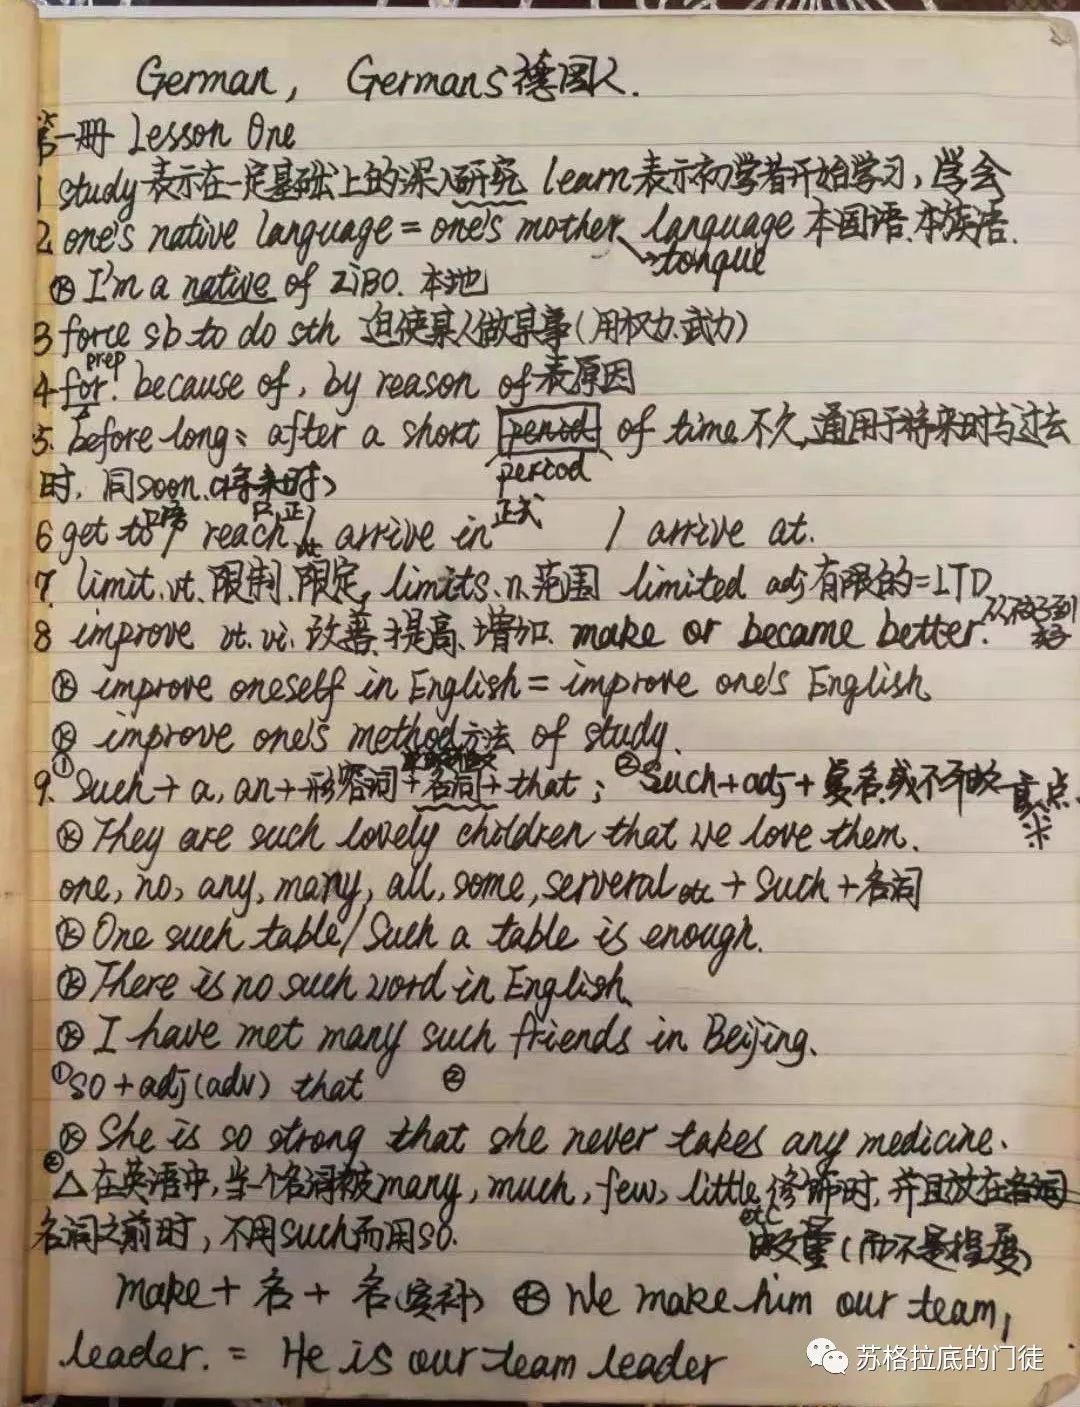 German, Germans德国人.
第一册 Lesson One
1 study表示在一定基础上的深入研究 learn表示初学者开始学习,学会
2 one's native language = one's mother language 本国语.本族语.
tongue
例 I'm a native of ZiBO. 本地
3 force sb to do sth 迫使某人做某事(用权力.武力)
prep
4 for. because of, by reason of 表原因
5. before long: after a short period of time 不久,通用于将来时与过去
period
时, 同soon.(将来时)
口语 正式
6 get to / reach / arrive in / arrive at.
vt
7. limit.vt.限制.限定, limits.n.范围 limited adj有限的=LTD
8 improve vt.vi.改善.提高.增加. make or became better.
例 improve oneself in English = improve one's English
例 improve one's method方法 of study.
9. ①Such + a, an + 形容词 + 名词 + that; ②Such + adj +
例 They are such lovely children that we love them.
one, no, any, many, all, some, serveral etc + Such + 名词
例 One such table/Such a table is enough.
例 There is no such word in English.
例 I have met many such friends in Beijing.
①so + adj(adv) that ②
例 She is so strong that she never takes any medicine.
②△在英语中,当个名词被many, much, few, little修饰时,并且放在名词
etc
名词之前时,不用such而用so. (而不是程度)
make + 名 + 名(宾补) 例 We make him our team,
leader. = He is our team leader
苏格拉底的门徒